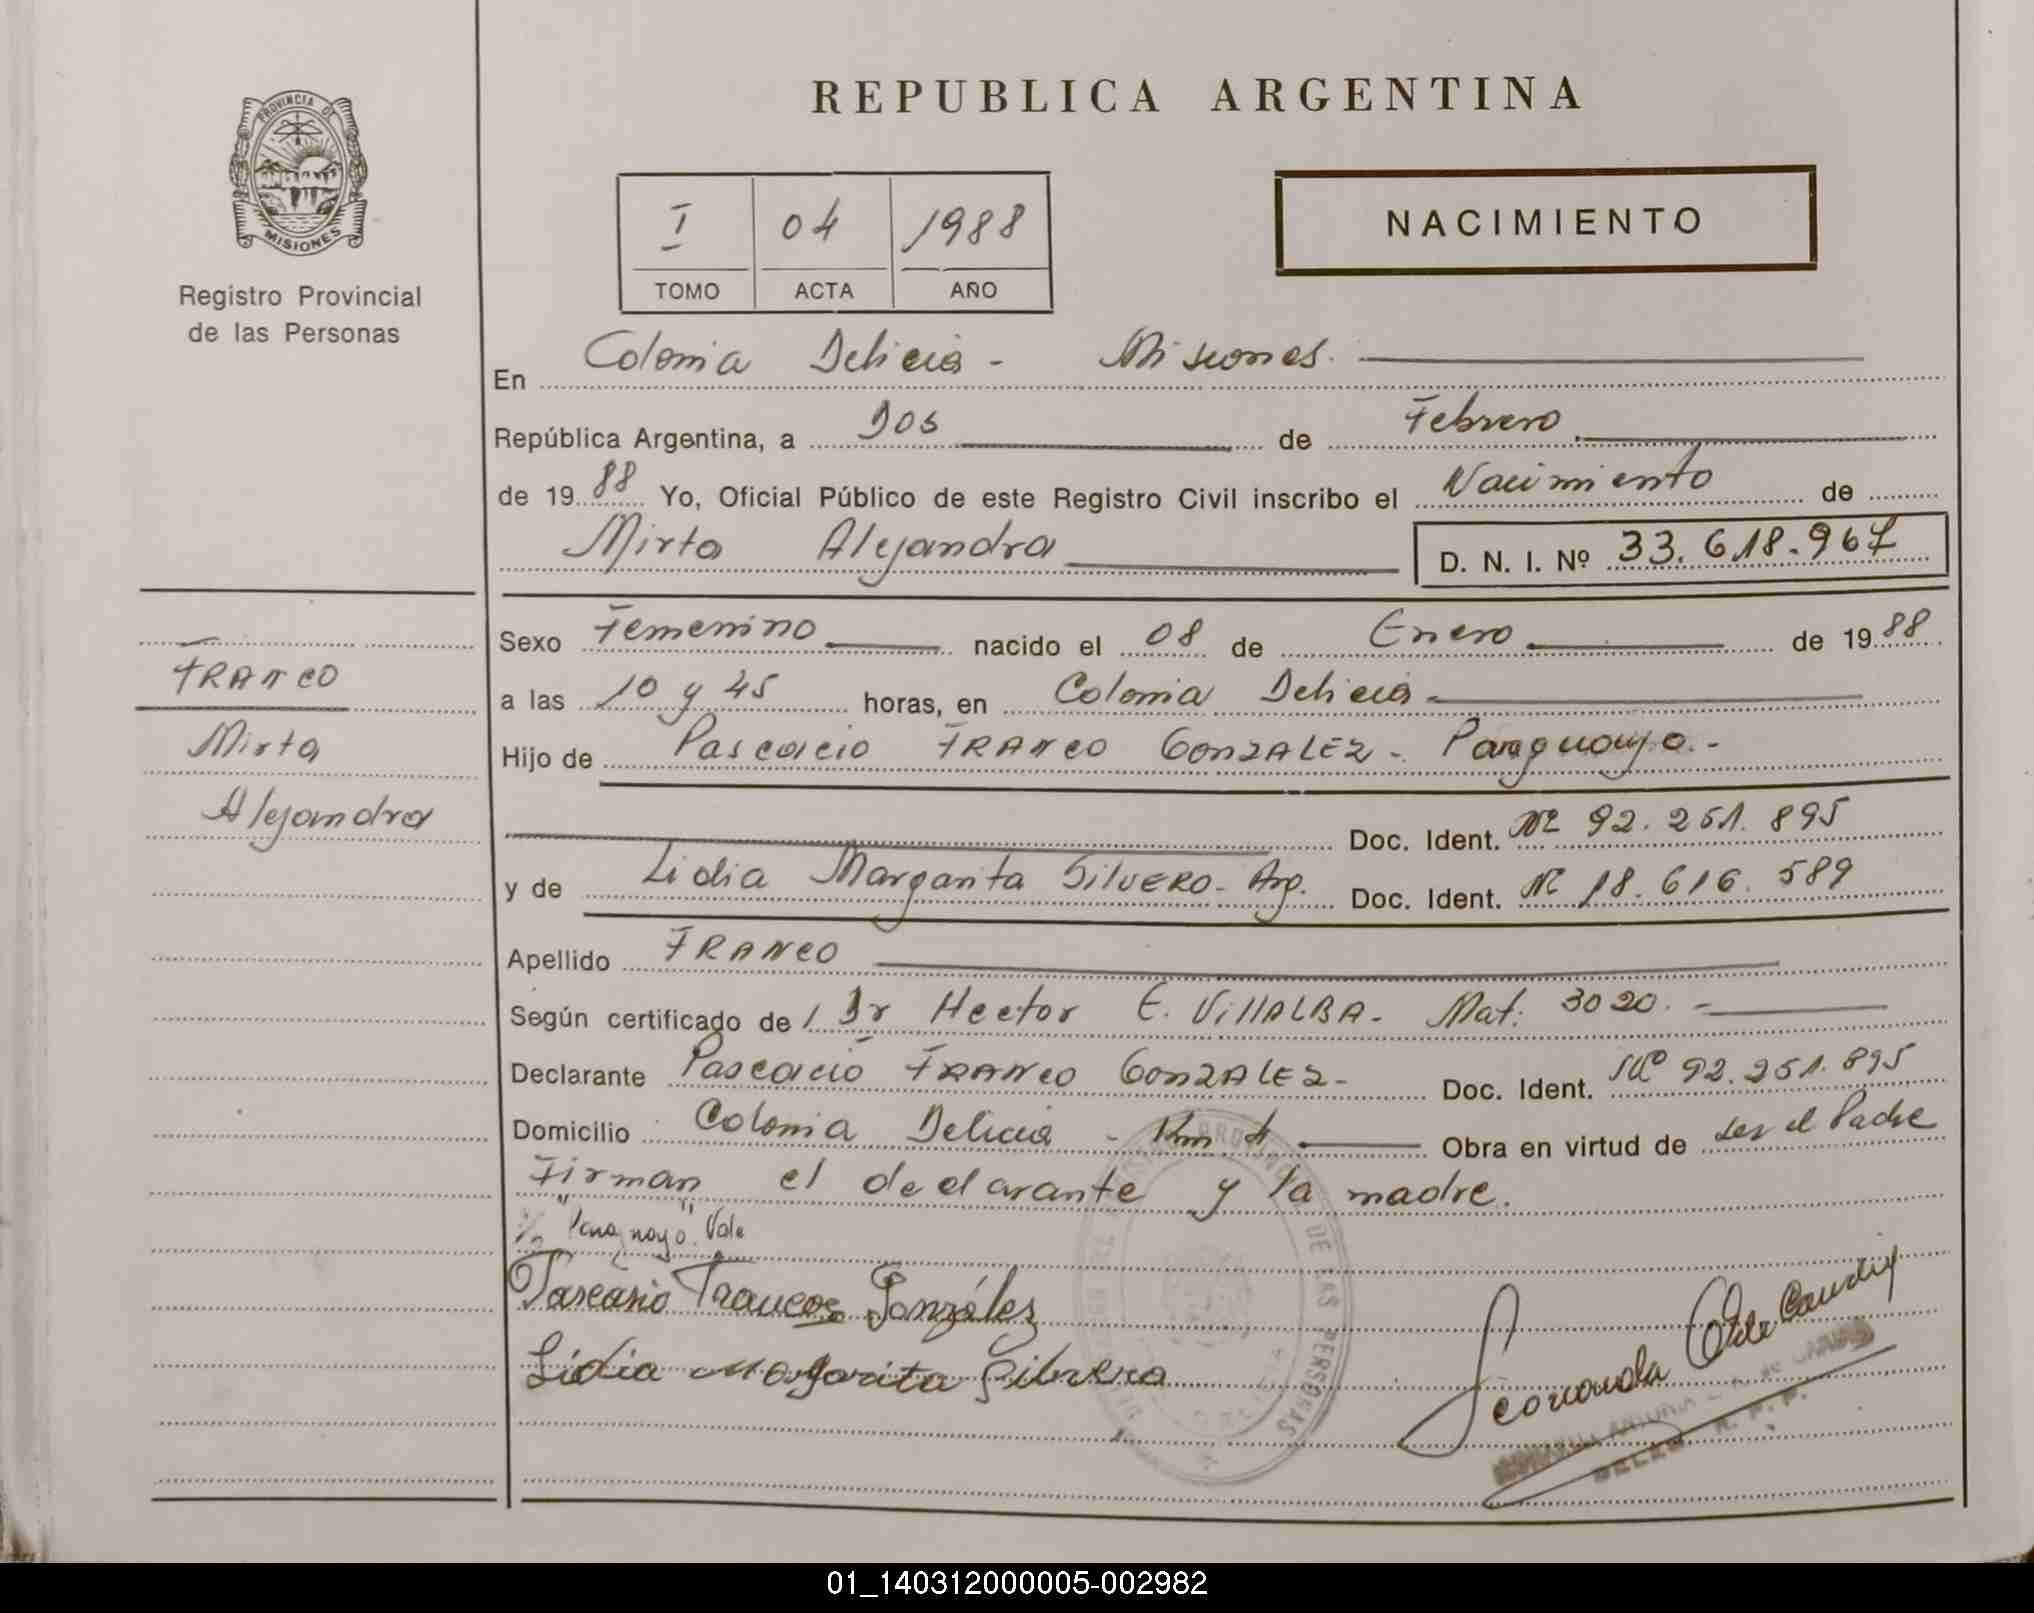 REPUBLICA ARGENTINA
PROVINCIA DE
MISIONES
Registro Provincial
de las Personas
I 04 1988
TOMO ACTA AÑO
NACIMIENTO
En Colonia Delicia - Misiones.
República Argentina, a Dos de Febrero
de 1988 Yo, Oficial Público de este Registro Civil inscribo el Nacimiento de
Mirta Alejandra D. N. I. Nº 33.618.967
Sexo Femenino nacido el 08 de Enero de 1988
a las 10 y 45 horas, en Colonia Delicia
Hijo de Pascacio FRANCO GONZALEZ - Paraguayo.-
Doc. Ident. Nº 92.251.895
y de Lidia Margarita SILVERO - Arg. Doc. Ident. Nº 18.616.589
Apellido FRANCO
Según certificado de / Dr Hector E. VILLALBA - Mat. 3020.-
Declarante Pascacio FRANCO GONZALEZ - Doc. Ident. Nº 92.251.895
Domicilio Colonia Delicia - Km 4 Obra en virtud de ser el Padre
Firman el declarante y la madre.
"Paraguayo". Vale
Pascasio Franco González
Lidia Margarita Silvero
FRANCO
Mirta
Alejandra
01_140312000005-002982